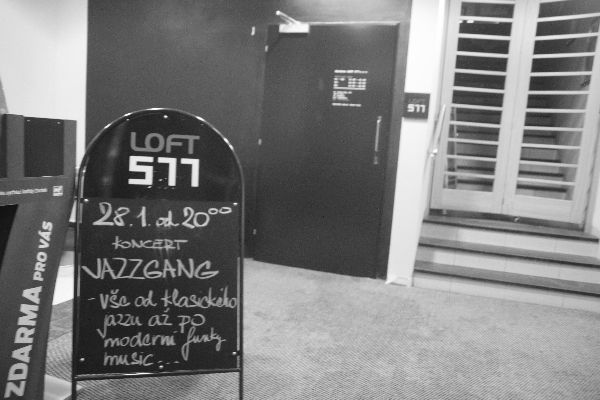 LOFT
577
28.1. od 20⁰⁰
KONCERT
JAZZGANG
- vše od klasického
jazzu až po
moderní funky
music...
ZDARMA PRO VÁS
LOFT
577